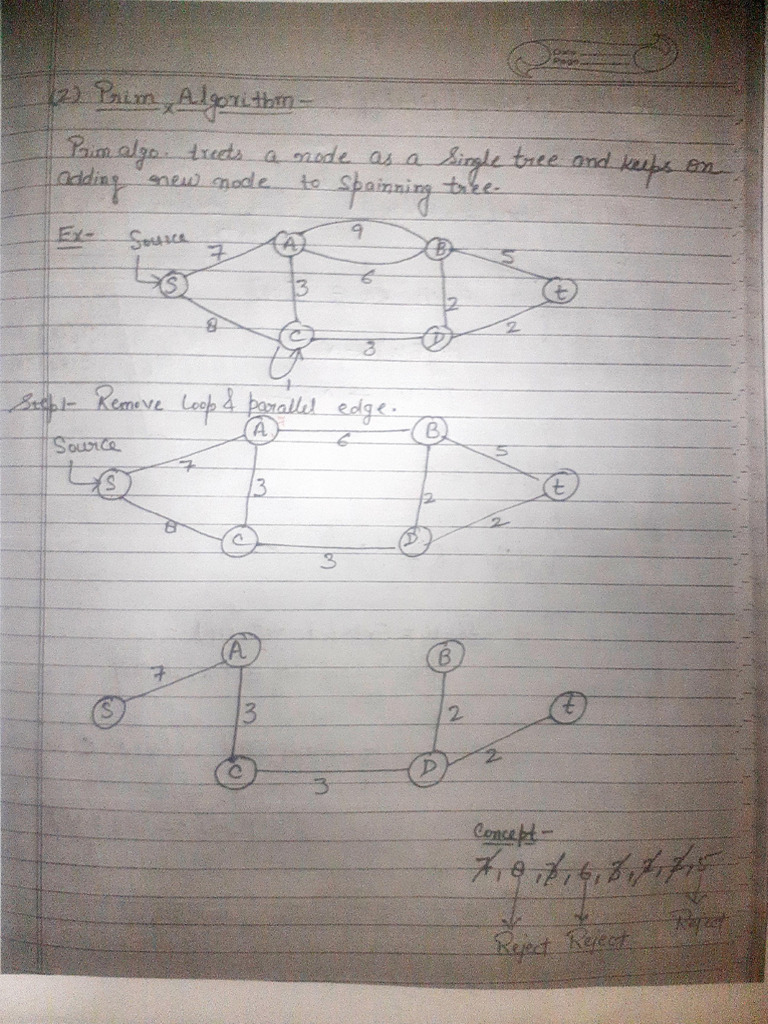 Date
Page
(2) Prim Algorithm-
Prim algo. treets a node as a Single tree and keeps on
adding new node to Spainning tree.
Ex- Source
7 A 9 B 5
S 6 t
3 2
8 C 3 D 2
1
Step1- Remove loop & parallel edge.
Source
A 6 B
7 5
S 3 2 t
8 2
C 3 D
A B
7
S 3 2 t
C 3 D 2
Concept-
7, 8, 3, 6, 3, 2, 2, 5
Reject Reject Reject